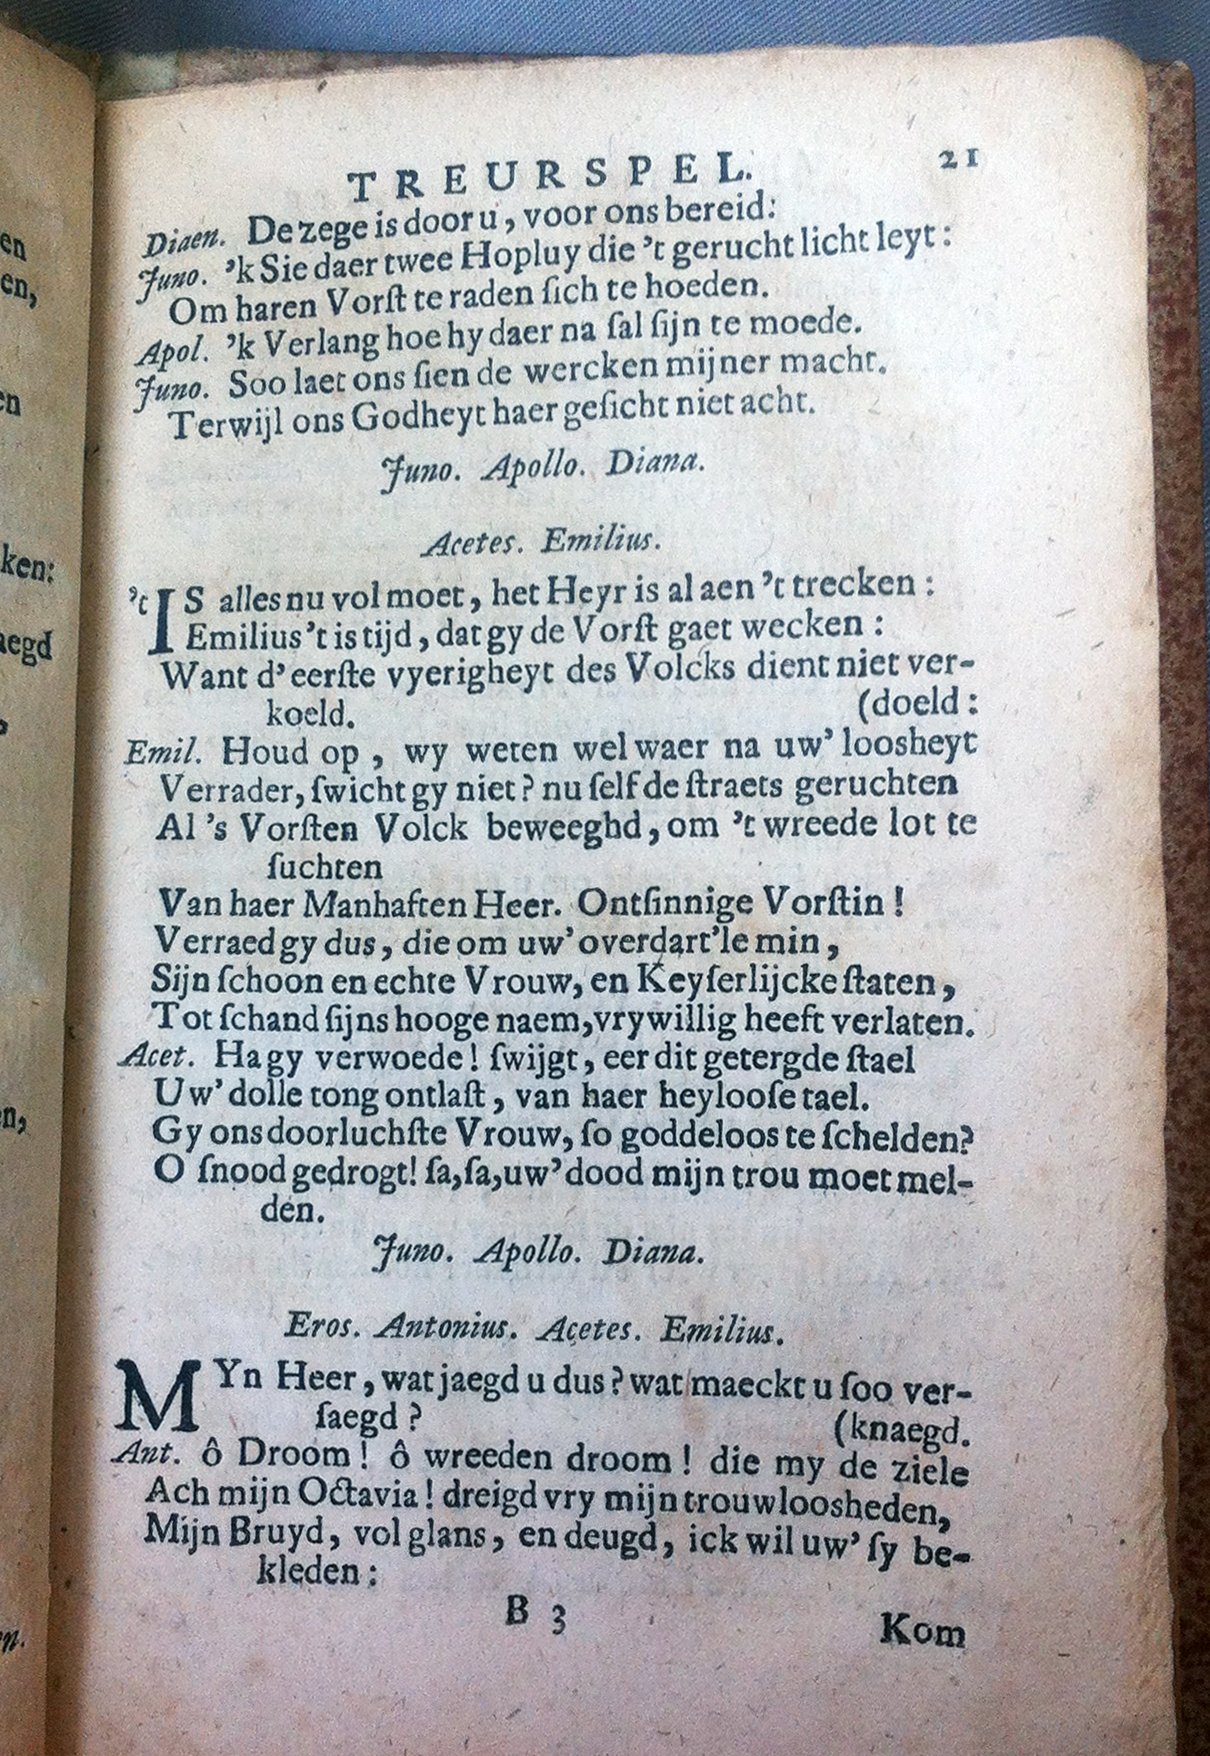 TREURSPEL. 21
Diaen. De zege is door u, voor ons bereid:
Juno. 'k Sie daer twee Hopluy die 't gerucht licht leyt:
Om haren Vorſt te raden ſich te hoeden.
Apol. 'k Verlang hoe hy daer na ſal ſijn te moede.
Juno. Soo laet ons ſien de wercken mijner macht.
Terwijl ons Godheyt haer geſicht niet acht.
Juno. Apollo. Diana.
Acetes. Emilius.
't IS alles nu vol moet, het Heyr is al aen 't trecken:
Emilius 't is tijd, dat gy de Vorſt gaet wecken:
Want d' eerſte vyerigheyt des Volcks dient niet ver-
koeld. (doeld:
Emil. Houd op, wy weten wel waer na uw' loosheyt
Verrader, ſwicht gy niet? nu ſelf de ſtraets geruchten
Al 's Vorſten Volck beweeghd, om 't wreede lot te
ſuchten
Van haer Manhaften Heer. Ontſinnige Vorſtin!
Verraed gy dus, die om uw' overdart'le min,
Sijn ſchoon en echte Vrouw, en Keyſerlijcke ſtaten,
Tot ſchand ſijns hooge naem, vrywillig heeft verlaten.
Acet. Ha gy verwoede! ſwijgt, eer dit getergde ſtael
Uw' dolle tong ontlaſt, van haer heylooſe tael.
Gy ons doorluchſte Vrouw, ſo goddeloos te ſchelden?
O ſnood gedrogt! ſa, ſa, uw' dood mijn trou moet mel-
den.
Juno. Apollo. Diana.
Eros. Antonius. Acetes. Emilius.
MYn Heer, wat jaegd u dus? wat maeckt u ſoo ver-
ſaegd? (knaegd.
Ant. ô Droom! ô wreeden droom! die my de ziele
Ach mijn Octavia! dreigd vry mijn trouwloosheden,
Mijn Bruyd, vol glans, en deugd, ick wil uw' ſy be-
kleden:
B 3 Kom
en
en,
en
ken:
aegd
en,
en.